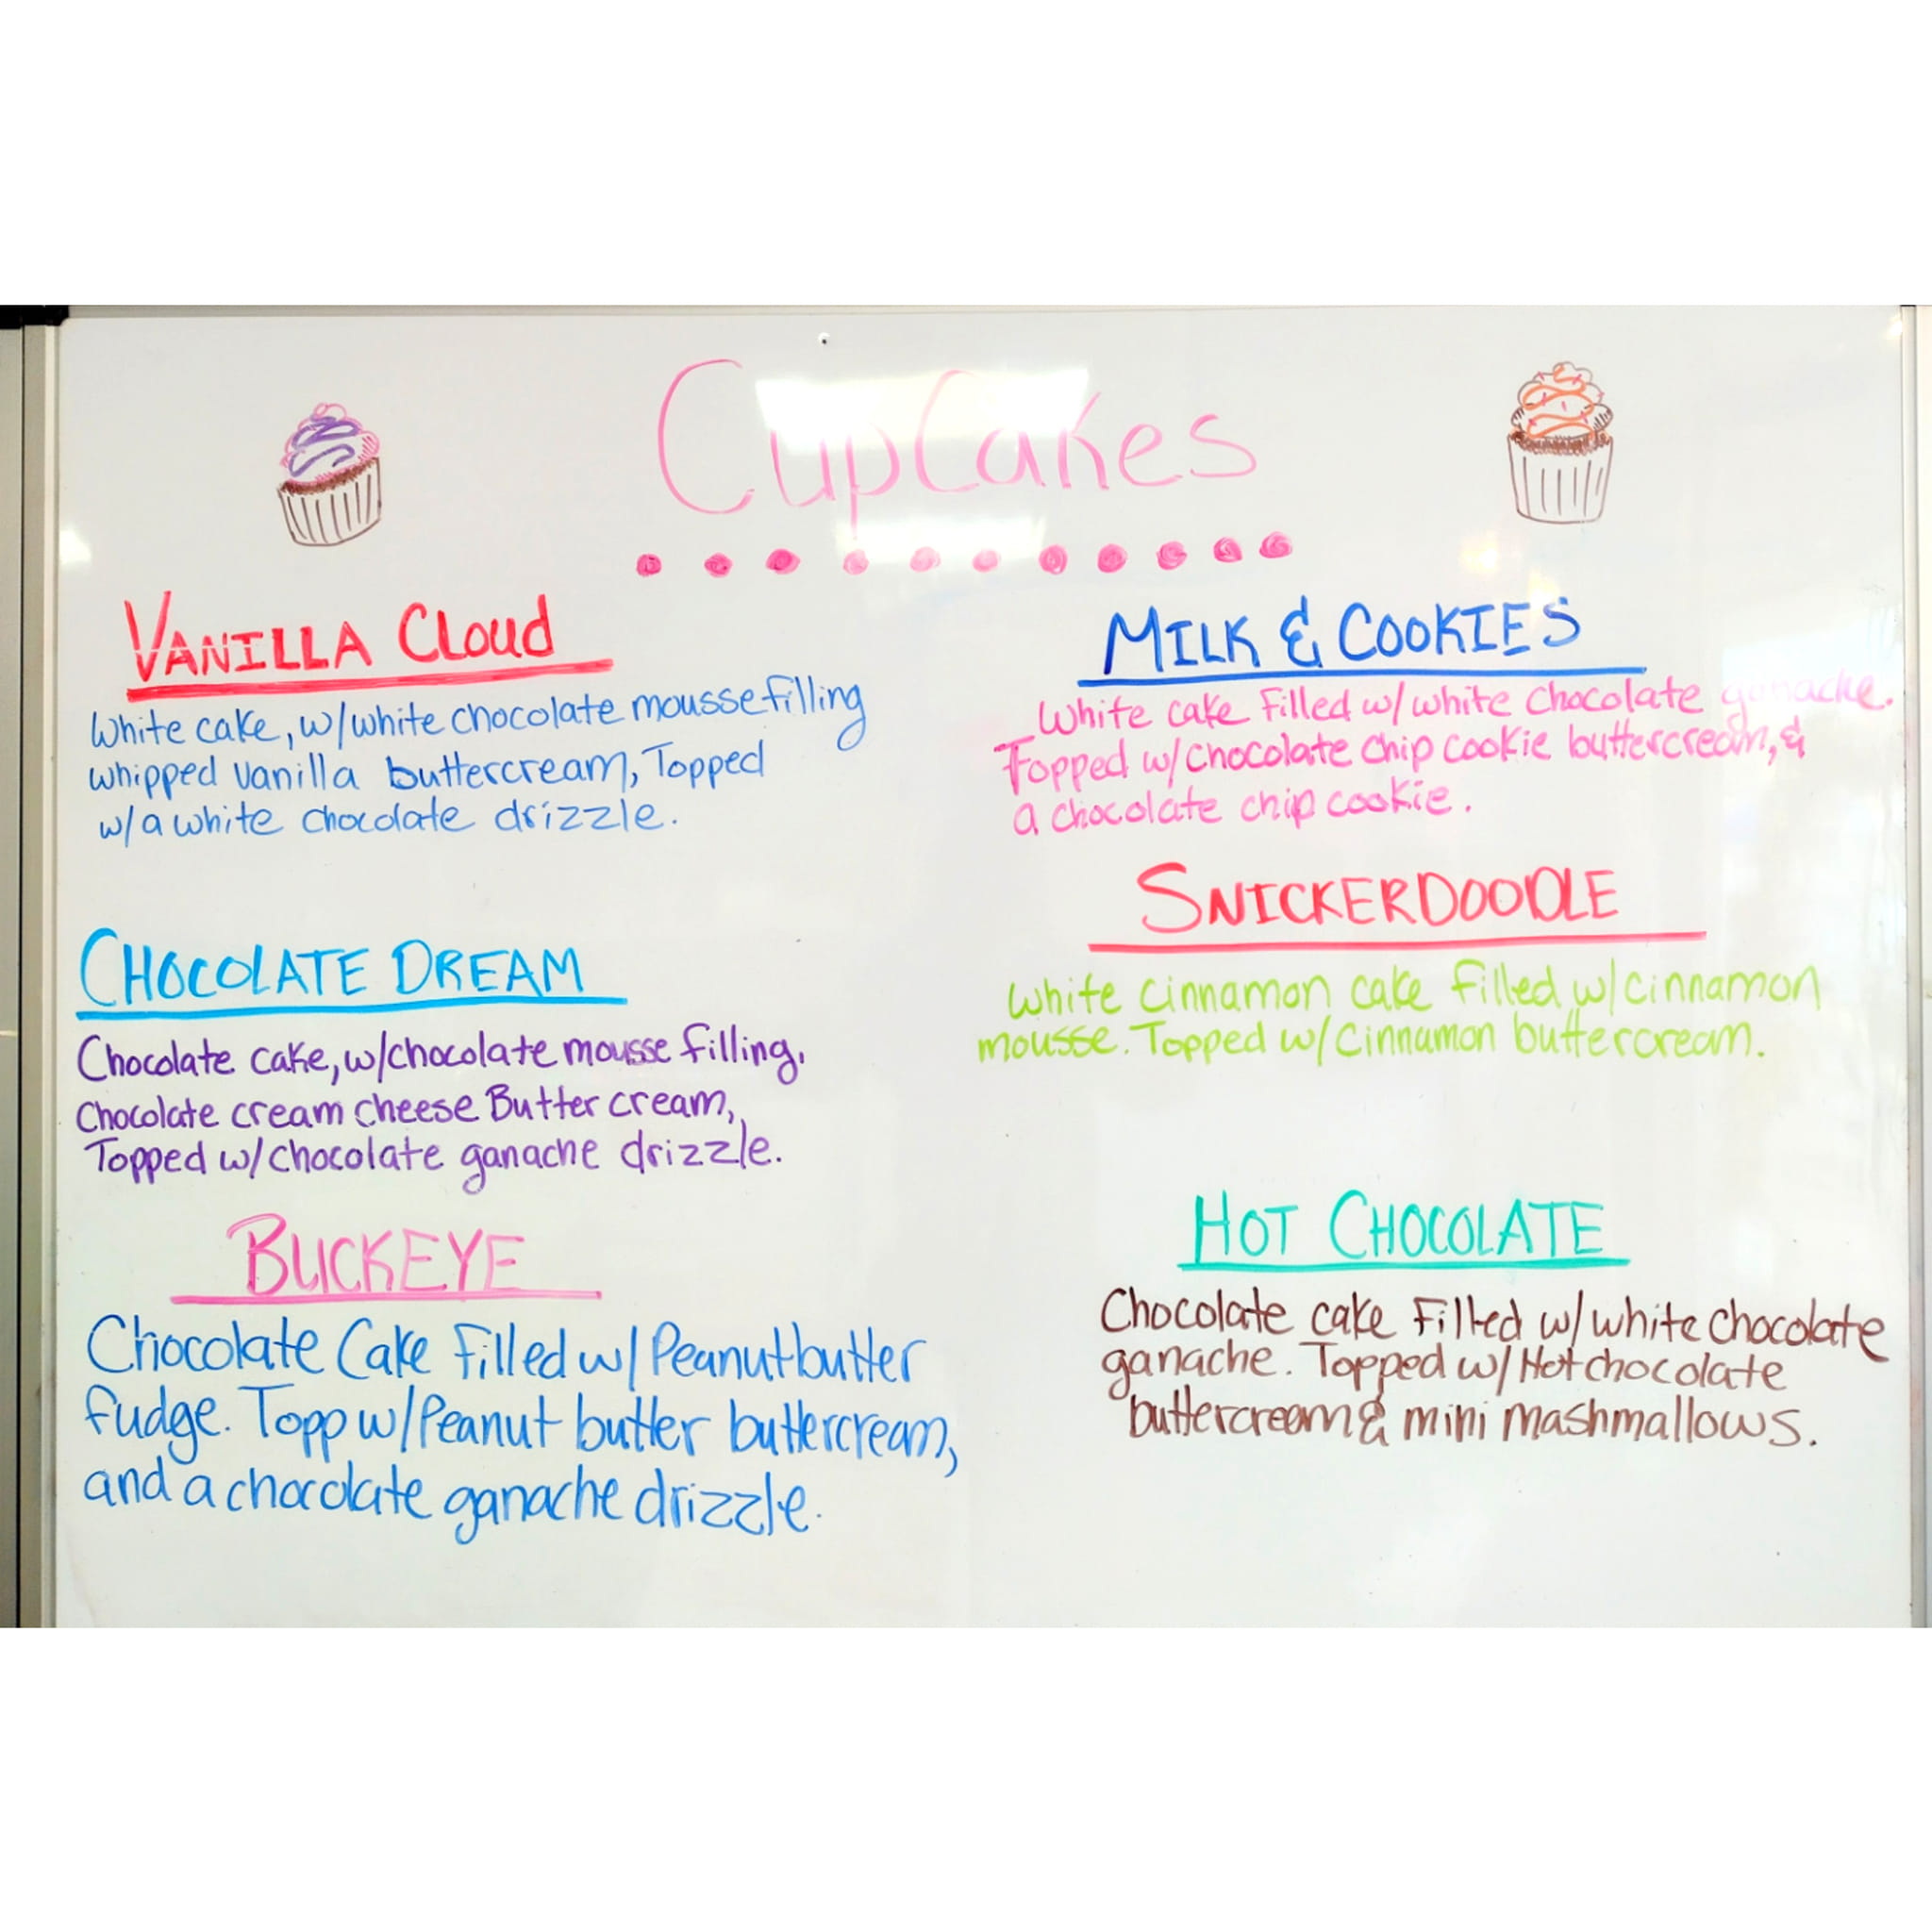 CupCakes
VANILLA Cloud
White cake, w/white chocolate mousse filling
whipped vanilla buttercream, Topped
w/a white chocolate drizzle.
CHOCOLATE DREAM
Chocolate cake, w/chocolate mousse filling.
Chocolate cream cheese Butter cream,
Topped w/chocolate ganache drizzle.
BUCKEYE
Chocolate Cake filled w/Peanutbutter
fudge. Topp w/Peanut butter buttercream,
and a chocolate ganache drizzle.
MILK & COOKIES
White cake Filled w/white chocolate ganache.
Topped w/chocolate chip cookie buttercream, &
a chocolate chip cookie.
SNICKERDOODLE
white cinnamon cake filled w/cinnamon
mousse. Topped w/Cinnamon buttercream.
HOT CHOCOLATE
Chocolate cake Filled w/white chocolate
ganache. Topped w/Hot chocolate
buttercream & mini mashmallows.